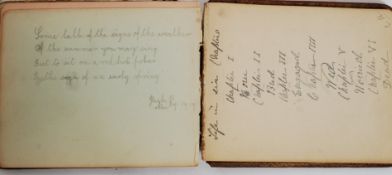 Some talk of the signs of the weather
Of the summer you may sing
But to sit on a red hot poker
Is the sign of an early spring
Life in six Chapters
Chapter I
Chapter II
Bred
Chapter III
Engaged
Chapter IIII
Wed
Chapter V
Worried
Chapter VI
Dead